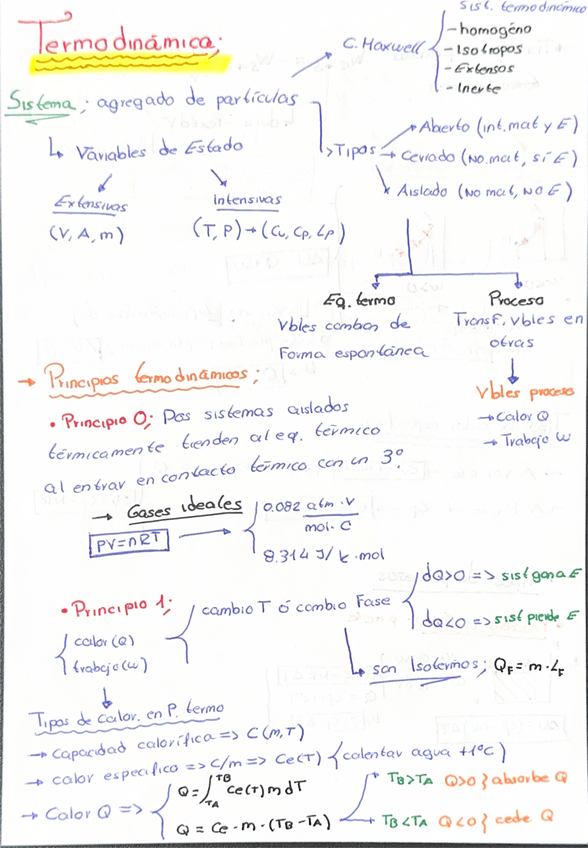 Termodinámica;
Sist. termodinámico
C. Maxwell
- homogéno
- Isotropos
- Extensos
- Inerte
Sistema; agregado de partículas
↳ Variables de Estado
Extensivas
(V, A, m)
Intensivas
(T, P) → (Cv, Cp, Lp)
Tipos
Abierto (int. mat y E)
Cerrado (NO. mat, sí E)
Aislado (No mat, NO E)
Eq. termo
Vbles camban de
Forma espontánea
Proceso
Transf. vbles en
otras
Vbles proceso
→ Calor Q
→ Trabajo W
→ Principios termodinámicos;
• Principio 0; Dos sistemas aislados
térmicamente tienden al eq. térmico
al entrar en contacto térmico con un 3º.
→ Gases ideales
PV=nRT
0.082 atm·V / mol·C
8.314 J/k·mol
• Principio 1;
calor (Q)
trabajo (W)
cambio T ó cambio Fase
dQ>0 => sist gana E
dQ<0 => sist pierde E
↳ son Isotermos; QF = m·LF
Tipos de calor. en P. termo
→ Capacidad calorífica => C(m,T)
→ calor especifico => C/m => Ce(T) {calentar agua +1ºC)
→ Calor Q =>
Q = ∫TA TB Ce(T) m dT
Q = Ce·m·(TB-TA)
TB>TA Q>0} absorbe Q
TB<TA Q<0} cede Q